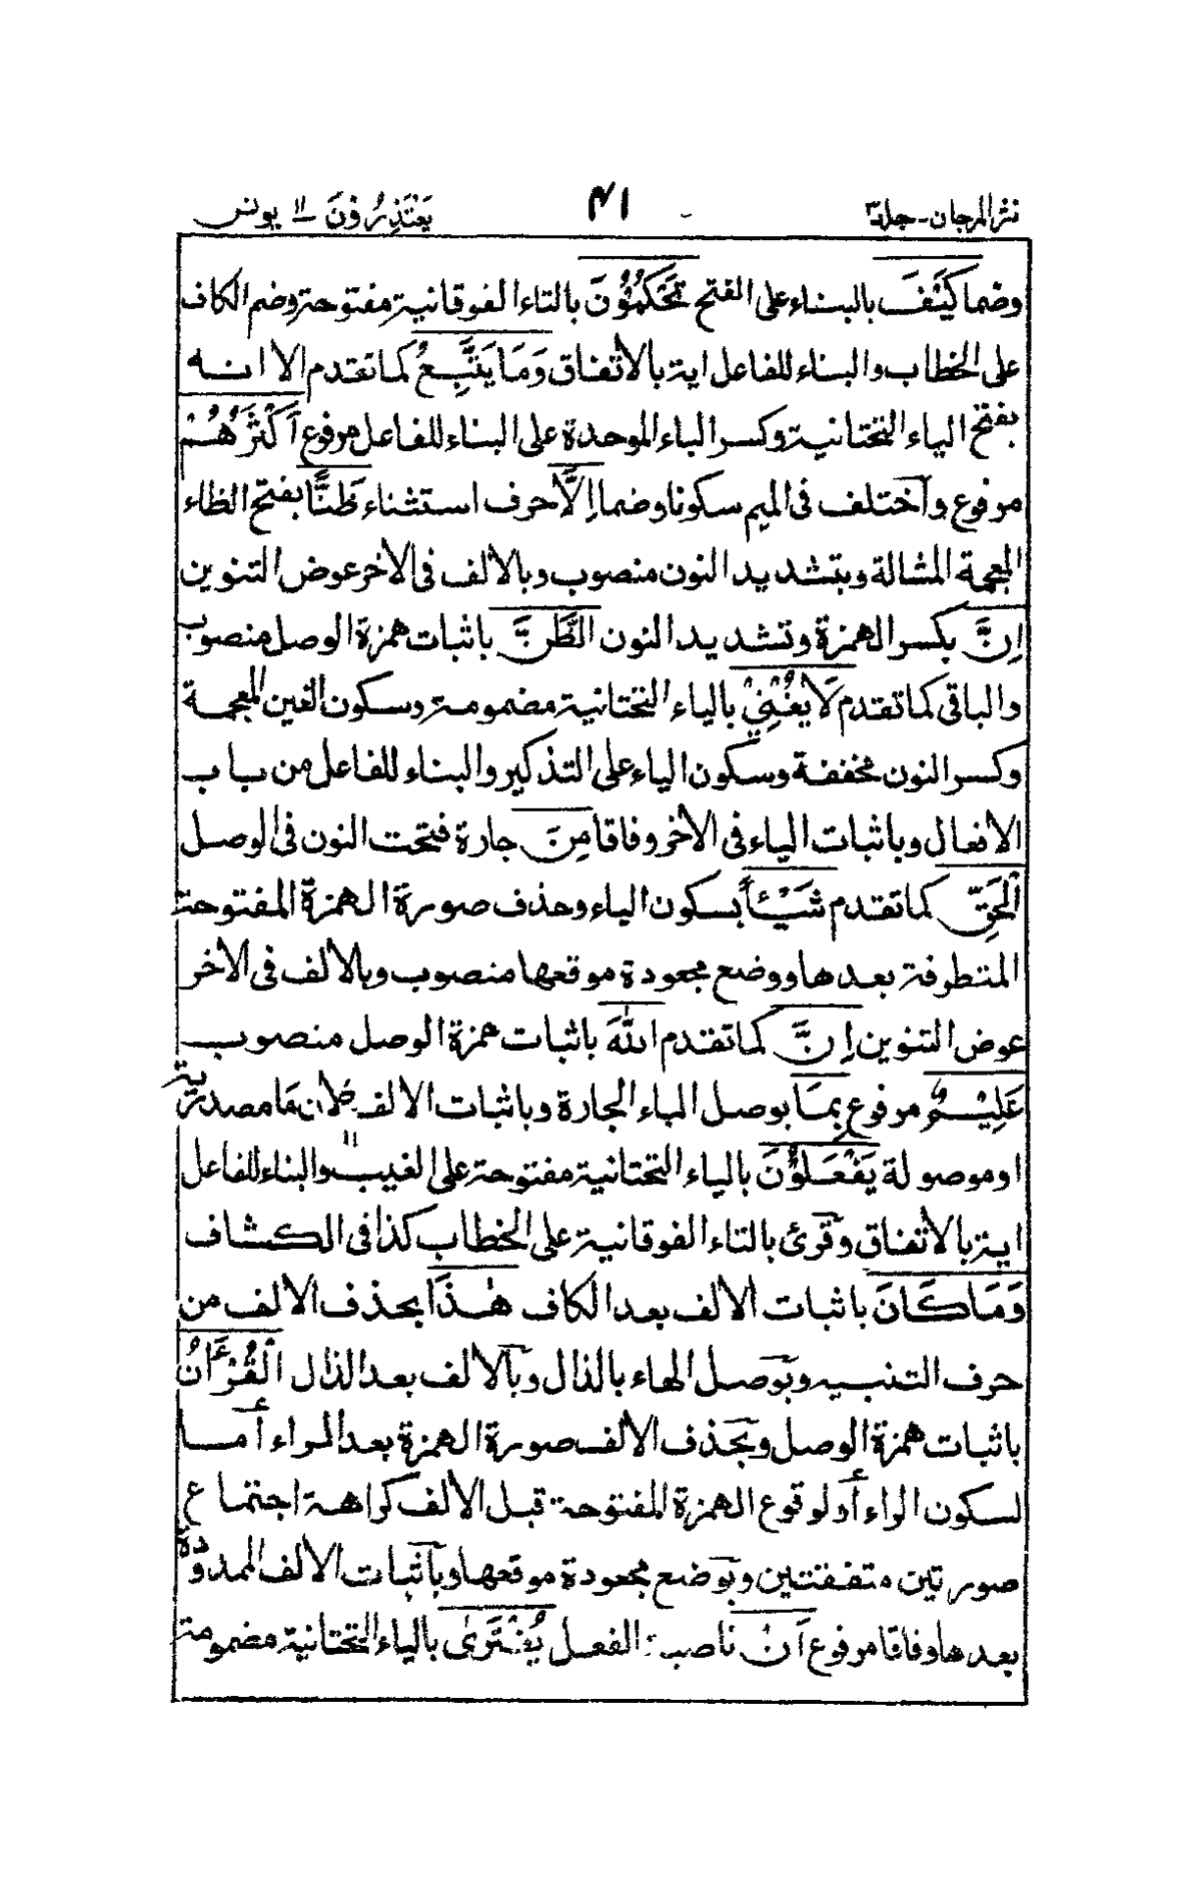 نثر المرجان - جلد ٣
٤١
يَعْتَذِرُوْنَ ١١ يونس
وضما كَيْفَ بالبناء على الفتح تَحْكُمُوْنَ بالتاء الفوقانية مفتوحة وضم الكاف
على الخطاب والبناء للفاعل اية بالاتفاق وَمَا يَتَّبِعُ كما تقدم الا انه
بفتح الياء التحتانية وكسر الباء الموحدة على البناء للفاعل مرفوع اَكْثَرُهُمْ
مرفوع واختلف فى الميم سكونا وضما اِلَّا حرف استثناء ظَنًّا بفتح الظاء
المعجمة المشالة وبتشديد النون منصوب وبالالف فى الاخر عوض التنوين
اِنَّ بكسر الهمزة وتشديد النون الظَّنَّ باثبات همزة الوصل منصوب
والباقى كما تقدم لَا يُغْنِيْ بالياء التحتانية مضمومة وسكون الغين المعجمة
وكسر النون مخففة وسكون الياء على التذكير والبناء للفاعل من باب
الافعال وباثبات الياء فى الاخر وفاقا مِنَ جارة فتحت النون فى الوصل
الْحَقِّ كما تقدم شَيْـًٔا بسكون الياء وحذف صورة الهمزة المفتوحة
المتطرفة بعدها ووضع مجعودة موقعها منصوب وبالالف فى الاخر
عوض التنوين اِنَّ كما تقدم اللّٰهَ باثبات همزة الوصل منصوب
عَلِيْمٌ مرفوع بِمَا بوصل الباء الجارة وباثبات الالف لان مَا مصدرية
او موصولة يَفْعَلُوْنَ بالياء التحتانية مفتوحة على الغيب والبناء للفاعل
اية بالاتفاق وقرئ بالتاء الفوقانية على الخطاب كذا فى الكشاف
وَمَا كَانَ باثبات الالف بعد الكاف هٰذَا بحذف الالف من
حرف التنبيه وبوصل الهاء بالذال وبالالف بعد الذال الْقُرْءَانُ
باثبات همزة الوصل وبحذف الالف صورة الهمزة بعد الراء أما
لسكون الراء أو لوقوع الهمزة المفتوحة قبل الالف كراهة اجتماع
صورتين متفقتين وبوضع مجعودة موقعها وباثبات الالف الممدودة
بعدها وفاقا مرفوع اَنْ ناصبة الفعل يُفْتَرٰى بالياء التحتانية مضمومة